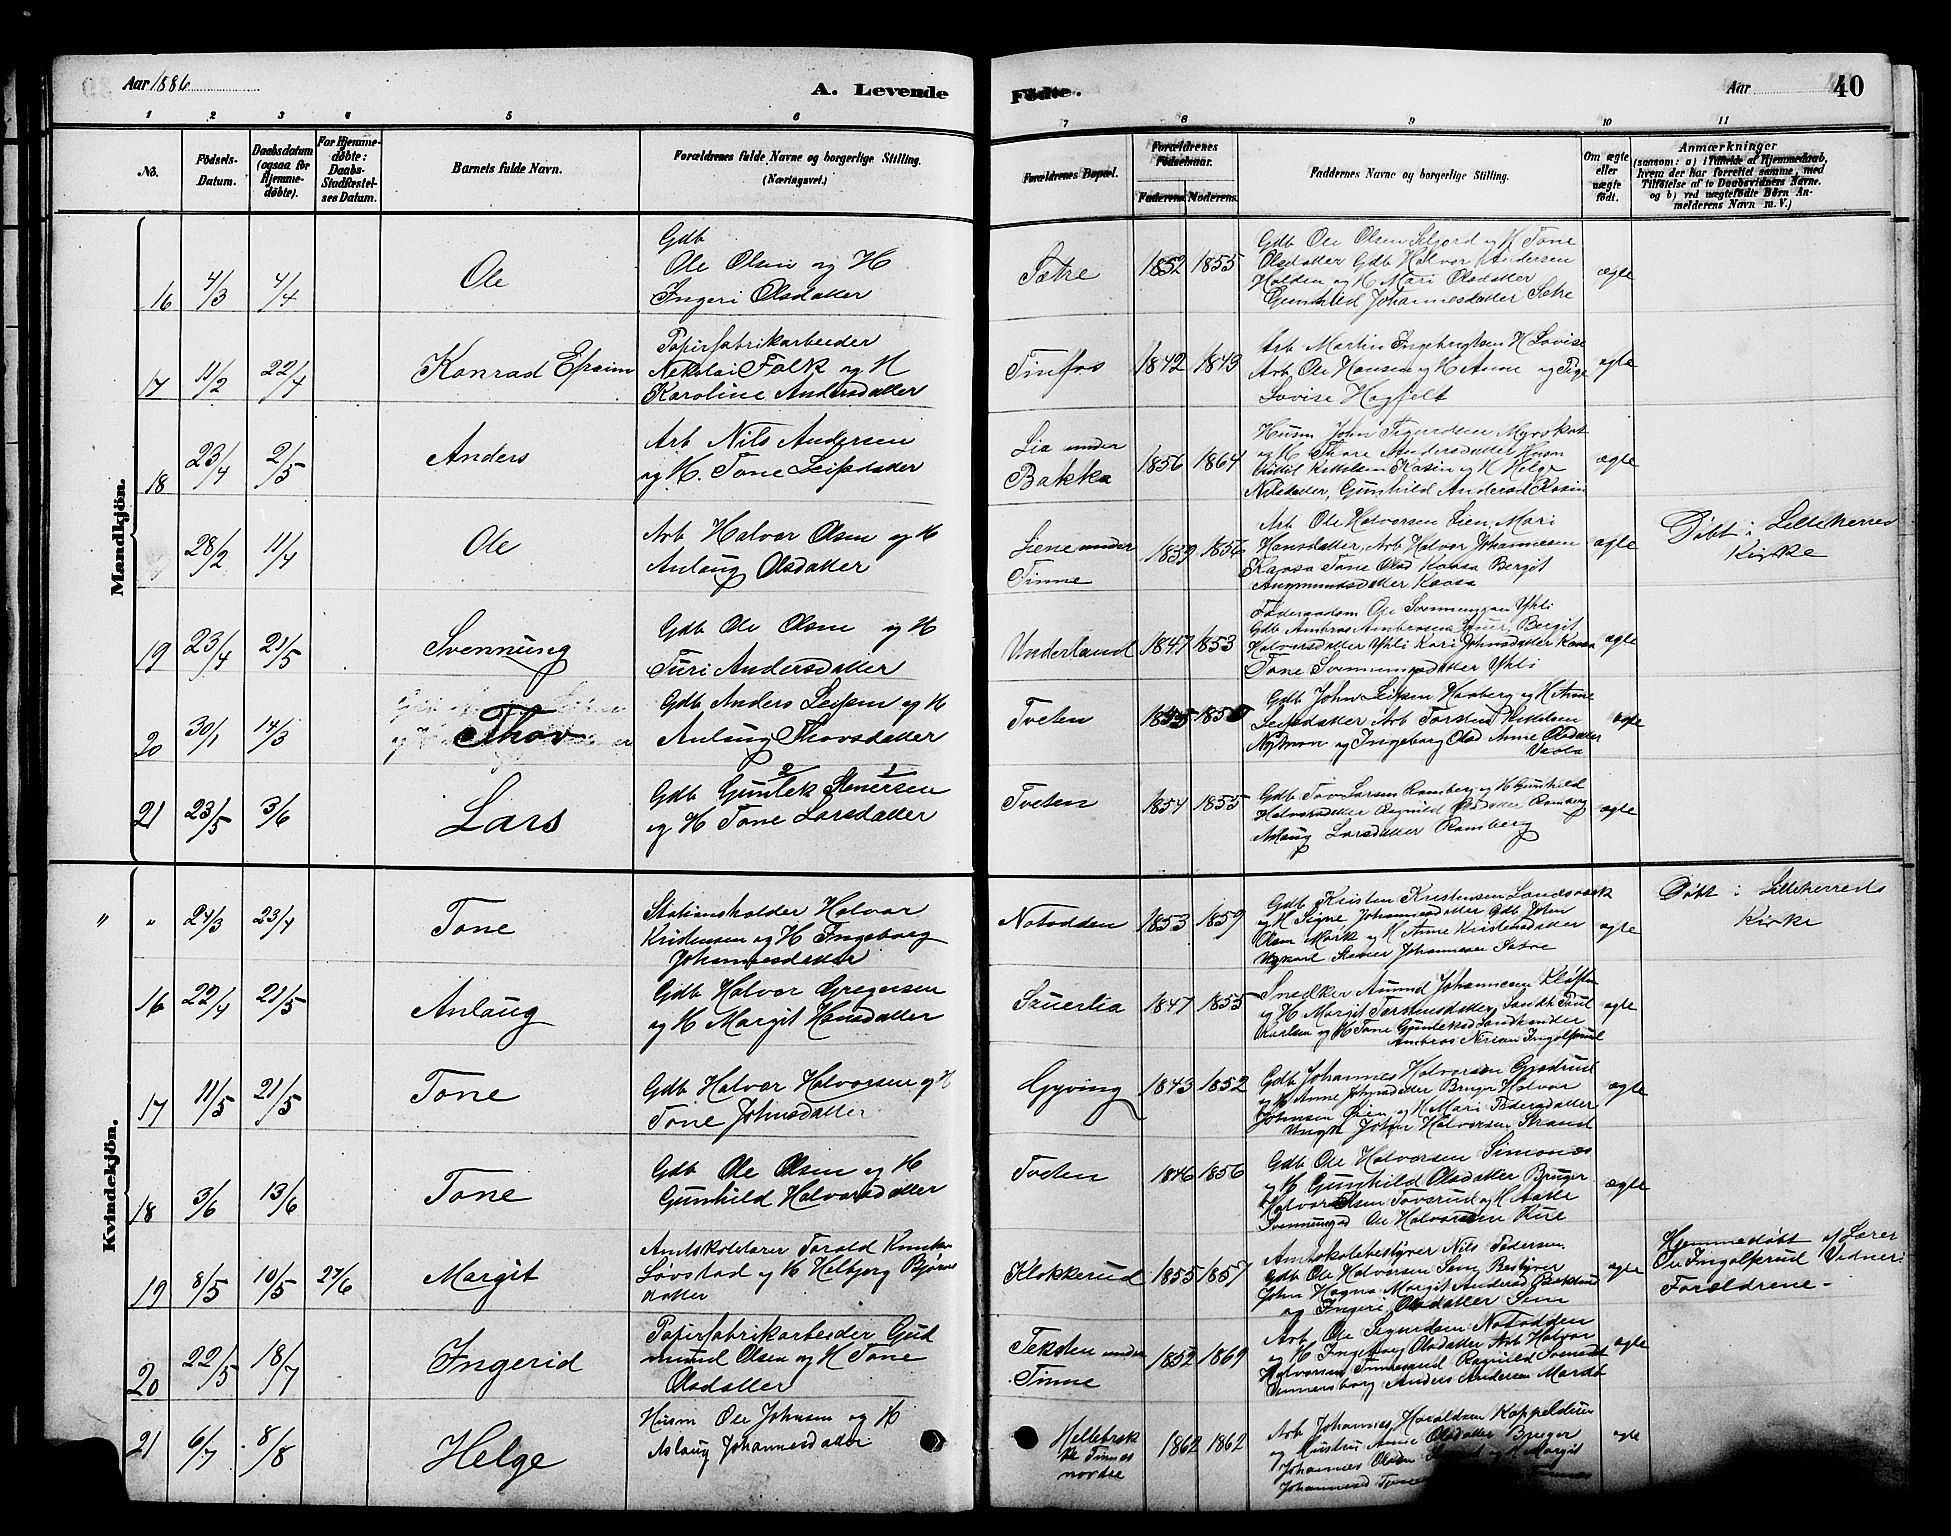 Aar 1886
A. Levende
Fødte.
Aar
40
1 2 3 4 5 6 7 8 9 10 11
No.
Fødsels-
Datum.
Daabsdatum
(ogsaa for
Hjemme-
døbte).
For Hjemme-
døbte:
Daabs-
Stadfæstel-
ses Datum.
Barnets fulde Navn.
Forældrenes fulde Navne og borgerlige Stilling.
(Næringsvei.)
Forældrenes Bopæl.
Forældrenes
Fødselsaar.
Faderens. Moderens.
Faddernes Navne og borgerlige Stilling.
Om ægte
eller
uægte
født.
Anmærkninger
(saasom: a) i Tilfælde af Hjemmedaab,
hvem der har forrettet samme, med
Tilføielse af to Daabsvidners Navne.
og b) ved uægtefødte Børn An-
melderens Navn m. V.)
Mandkjön.
16 4/3 4/4 Ole
Gdb
Ole Olsen og H
Ingeri Olsdatter
Sætre 1852 1855
Gdb Ole Olsen Seljord og H Tone
Olsdatter Gdb Halvor Andersen
Holden og H Mari Olsdatter
Gunhild Johannesdatter Sætre
ægte
17 11/2 22/4 Konrad Efraim
Papirfabrikarbeider
Nikolai Falk og H
Karoline Andersdatter
Tinfos 1842 1843
Arb Martin Ingebrigtsen H Lovise
Arb Ole Hansen og H Anne og Pige
Lovise Hagfelt
ægte
18 23/4 2/5 Anders
Arb Nils Andersen
og H. Tone Leifsdatter
Lia under
Bakka
1856 1864
Husm John Sigurdsen Myrskot
og H Thore Andersdatter Husm
Kittil Kittilsen Kasin og H Helge
Nilsdatter, Gunhild Andersd Kasin
ægte
28/2 11/4 Ole
Arb Halvor Olsen og H
Anlaug Olsdatter
Liene under
Tinne
1839 1856
Arb Ole Halvorsen Lien, Mari
Hansdatter, Arb Halvor Johannesen
Kaasa Tone Olsd Kaasa Bergit
Aasmundsdatter Kaasa
ægte
Døbt i Lilleherred
Kirke
19 23/4 21/5 Svennung
Gdb Ole Olsen og H
Turi Andersdatter
Underland 1847 1853
Føderaadsm Ole Svennungsen Yhli
Gdb Ambros Ambrosen Sauer, Bergit
Halvorsdatter Yhli Kari Johnsdatter Kaasa
Tone Svennungsdatter Yhli
ægte
20 30/1 14/3 Thov
Gdb Anders Leifsen og H
Anlaug Thovsdatter
Tveten 1855
Gdb John Leifsen Haaberg og H Anne
Leifsdatter Arb Torsten Kittilsen
Nymoen og Ingeborg Olsd Anne Olsdatter
ægte
21 23/5 3/6 Lars
Gdb Gunlek Stenersen
og H Tone Larsdatter
Tveten 1854 1855
Gdb Tov Larsen Ramberg og H Gunhild
Halvorsdatter Ragnild Olsdatter Ramberg
Anlaug Larsdatter Ramberg
ægte
Kvindekjön.
" " 24/3 23/4 Tone
Stationsholder Halvor
Kristensen og H Ingeborg
Johannesdatter
Notodden 1853 1859
Gdb Kristen Kristensen Landsværk
og H Signe Johannesdatter Gdb John
Olsen Mørk og H Anne Kristensdatter
Ugkarl Stener Johannesen Sætre
ægte
Døbt i Lilleherreds
Kirke
16 22/4 21/5 Anlaug
Gdb Halvor Gregersen
og H Margit Hansdatter
Gruerlia 1847 1855
Snedker Amund Johannesen Kløften
og H Margit Torstensdatter, Sandh Poul
Karlsen og H Tone Gunleksd Sandh under
Ambros Nirisen Ingolfsrud
ægte
17 11/5 21/5 Tone
Gdb Halvor Halvorsen og H
Tone Johnsdatter
Gyving 1843 1852
Gdb Johannes Halvorsen Gjosdrud
og H Anne Johnsdatter Bruger Halvor
Johnsen Øien og H Mari Pedersdatter
Ungk John Halvorsen Strand
ægte
18 3/6 13/6 Tone
Gdb Ole Olsen og H
Gunhild Halvorsdatter
Tveten 1846 1856
Gdb Ole Halvorsen Simonæs
og H Gunhild Olsdatter Bruger
Halvor Olsen Tovsrud og H Aaste
Svennungsd Ole Halvorsen Rue
ægte
19 8/5 10/5 27/6 Margit
Amtskolelærer Torald Knutsen
Løvstad og H Helbjørg Bjørns
datter
Klokkerud 1855 1857
Amtskolebestyrer Nils Pedersen
Gdb Ole Halvorsen Sem, Bestyrer
John Hagna Margit Andersd Baklund
og Ingeri Olsdatter Sem
ægte
Hjemmedøbt af Lærer
Ole Ingolfsrud Vidner:
Forældrene-
20 22/5 18/7 Ingerid
Papirfabrikarbeider Gud
mund Olsen og H Tone
Olsdatter
Teksten under
Tinne
1852 1869
Arb Ole Sigurdsen Notodden
og H Ingeborg Olsdatter Arb Halvor
Halvorsen Tinnesand Ragnild Svensdt
Tinnersborg Anders Andersen Mardt
ægte
21 6/7 8/8 Helge
Husm Ole Johnsen og H
Aslaug Johannesdatter
Hellebræk
Tinnes
nordre
1862 1862
Arb Johannes Haraldsen Kappelsrud
og Hustru Anne Olsdatter Bruger
Johannes Olsen og H Margit
Johannesd
ægte